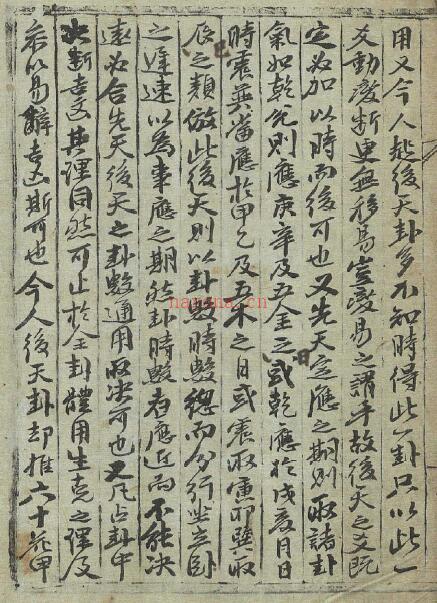 用又今人起後天卦多不知時得此一卦只以此一
爻動變斷更無移易豈變易之謂乎故後天之爻既
定必加以時而後可也又先天定應之期則取諸卦
氣如乾兌則應庚辛及五金之或乾應於戌亥月日
時震巽當應於甲乙及五木之日或震取寅卯巽取
辰之類倣此後天則以卦數時數總而分行坐立卧
之遲速以為事應之期然卦時數者應近而不能決
遠必合先天後天之卦數通用取決可也又凡占卦中
決斷吉凶其理固然可止於全卦體用生克之理及
參以易辭吉凶斯可也今人後天卦却推六十花甲
nayona.cn